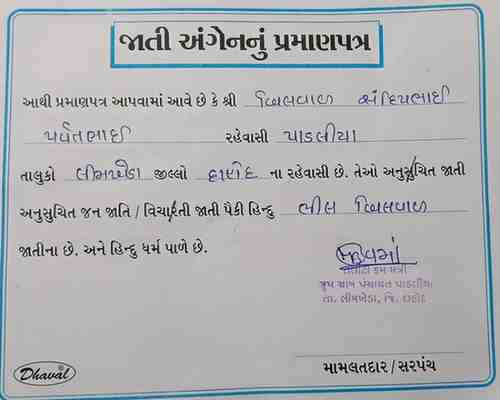 જાતી અંગેનનું પ્રમાણપત્ર
આથી પ્રમાણપત્ર આપવામાં આવે છે કે શ્રી ખિલવાળ સંદિપભાઈ
પર્વતભાઈ રહેવાસી પાડલીયા
તાલુકો લીમખેડા જીલ્લો દાહોદ ના રહેવાસી છે. તેઓ અનુસુચિત જાતી
અનુસુચિત જન જાતિ / વિચારતી જાતી પૈકી હિન્દુ ભીલ ખિલવાળ
જાતીના છે. અને હિન્દુ ધર્મ પાળે છે.
તલાટી કમ મંત્રી
ગ્રુપ ગ્રામ પંચાયત પાડલીયા
તા. લીમખેડા, જિ. દાહોદ
મામલતદાર / સરપંચ
Dhaval